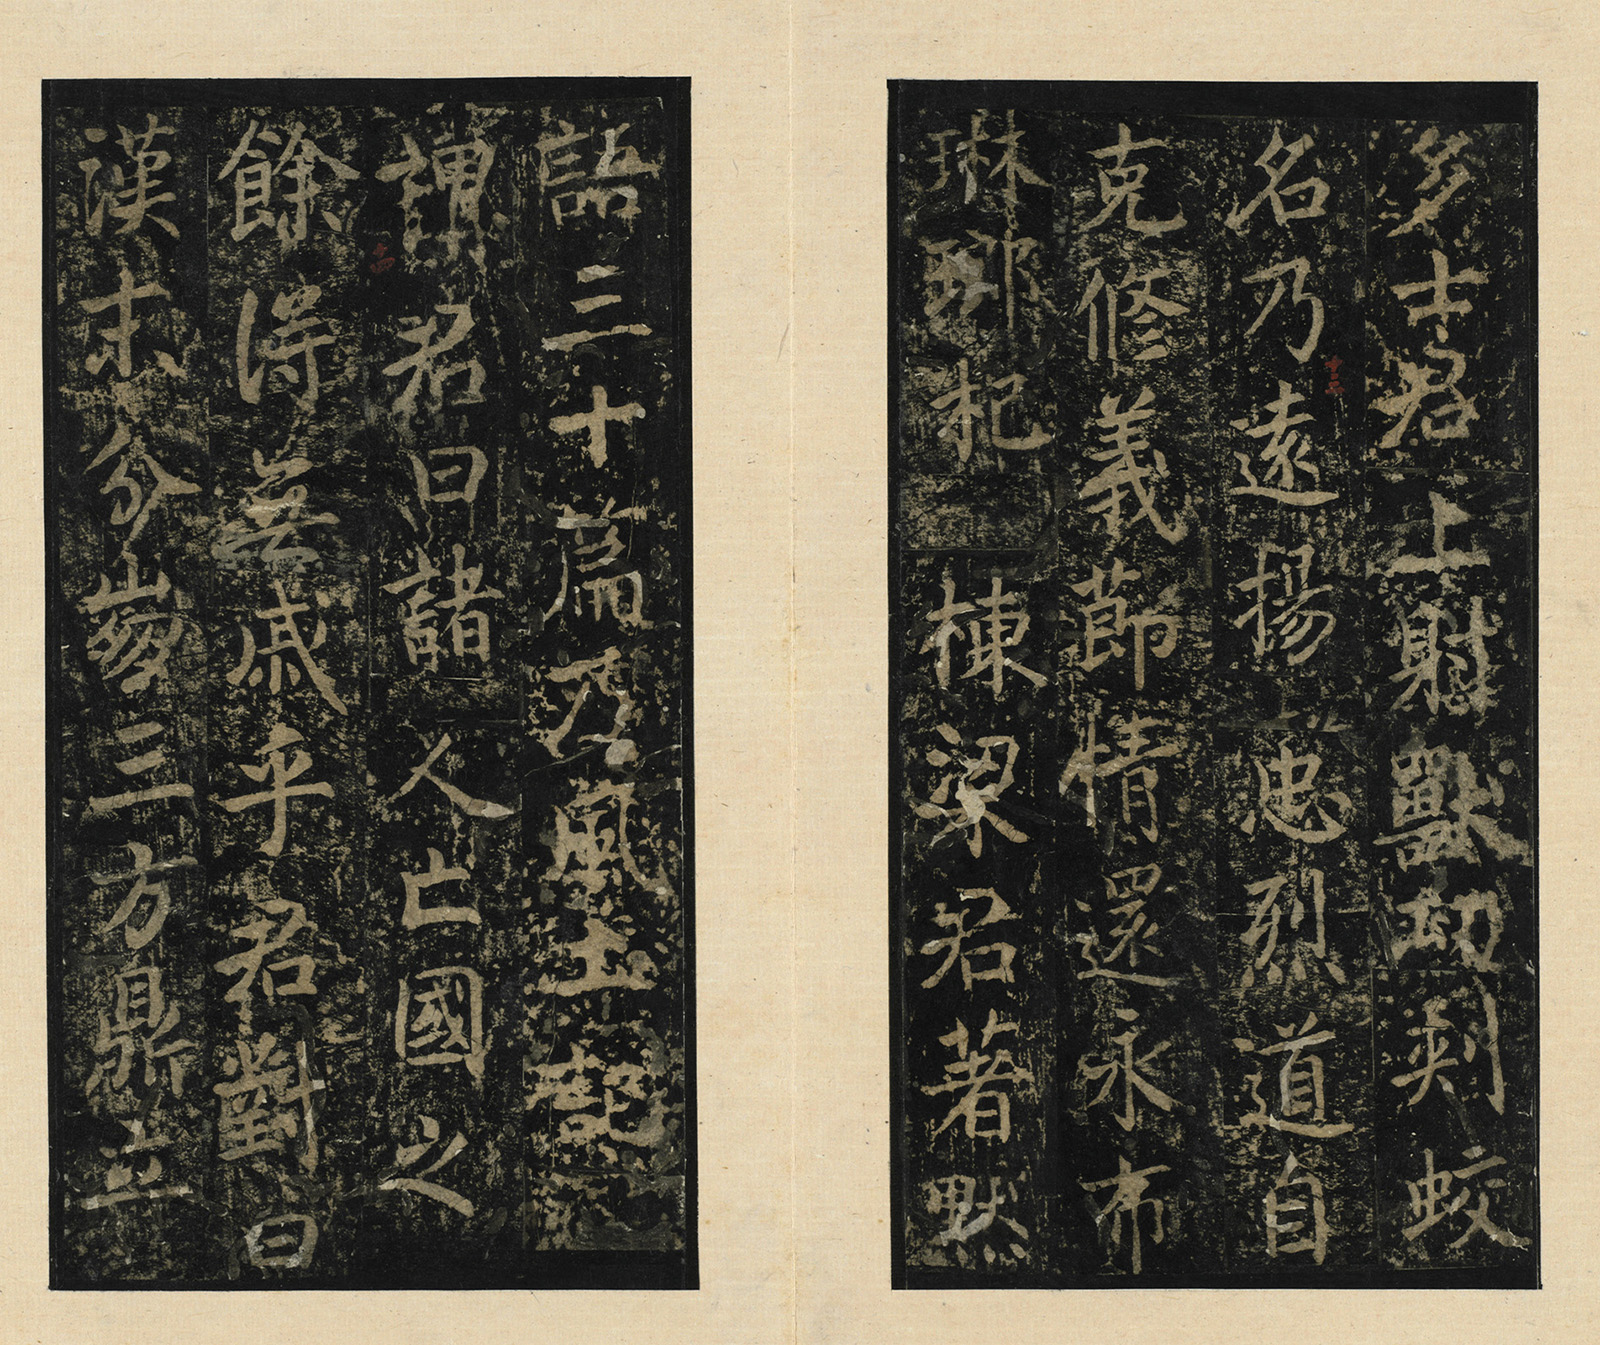 多士君上射獸刾蛟
名乃遠揚忠烈道自
克修義節情還永布
琳瑯杞棟梁君著默
語三十篇及風土記
謂君曰諸人亡國之
餘得無戚乎君對曰
漢末分崩三方鼎立
十三
十四